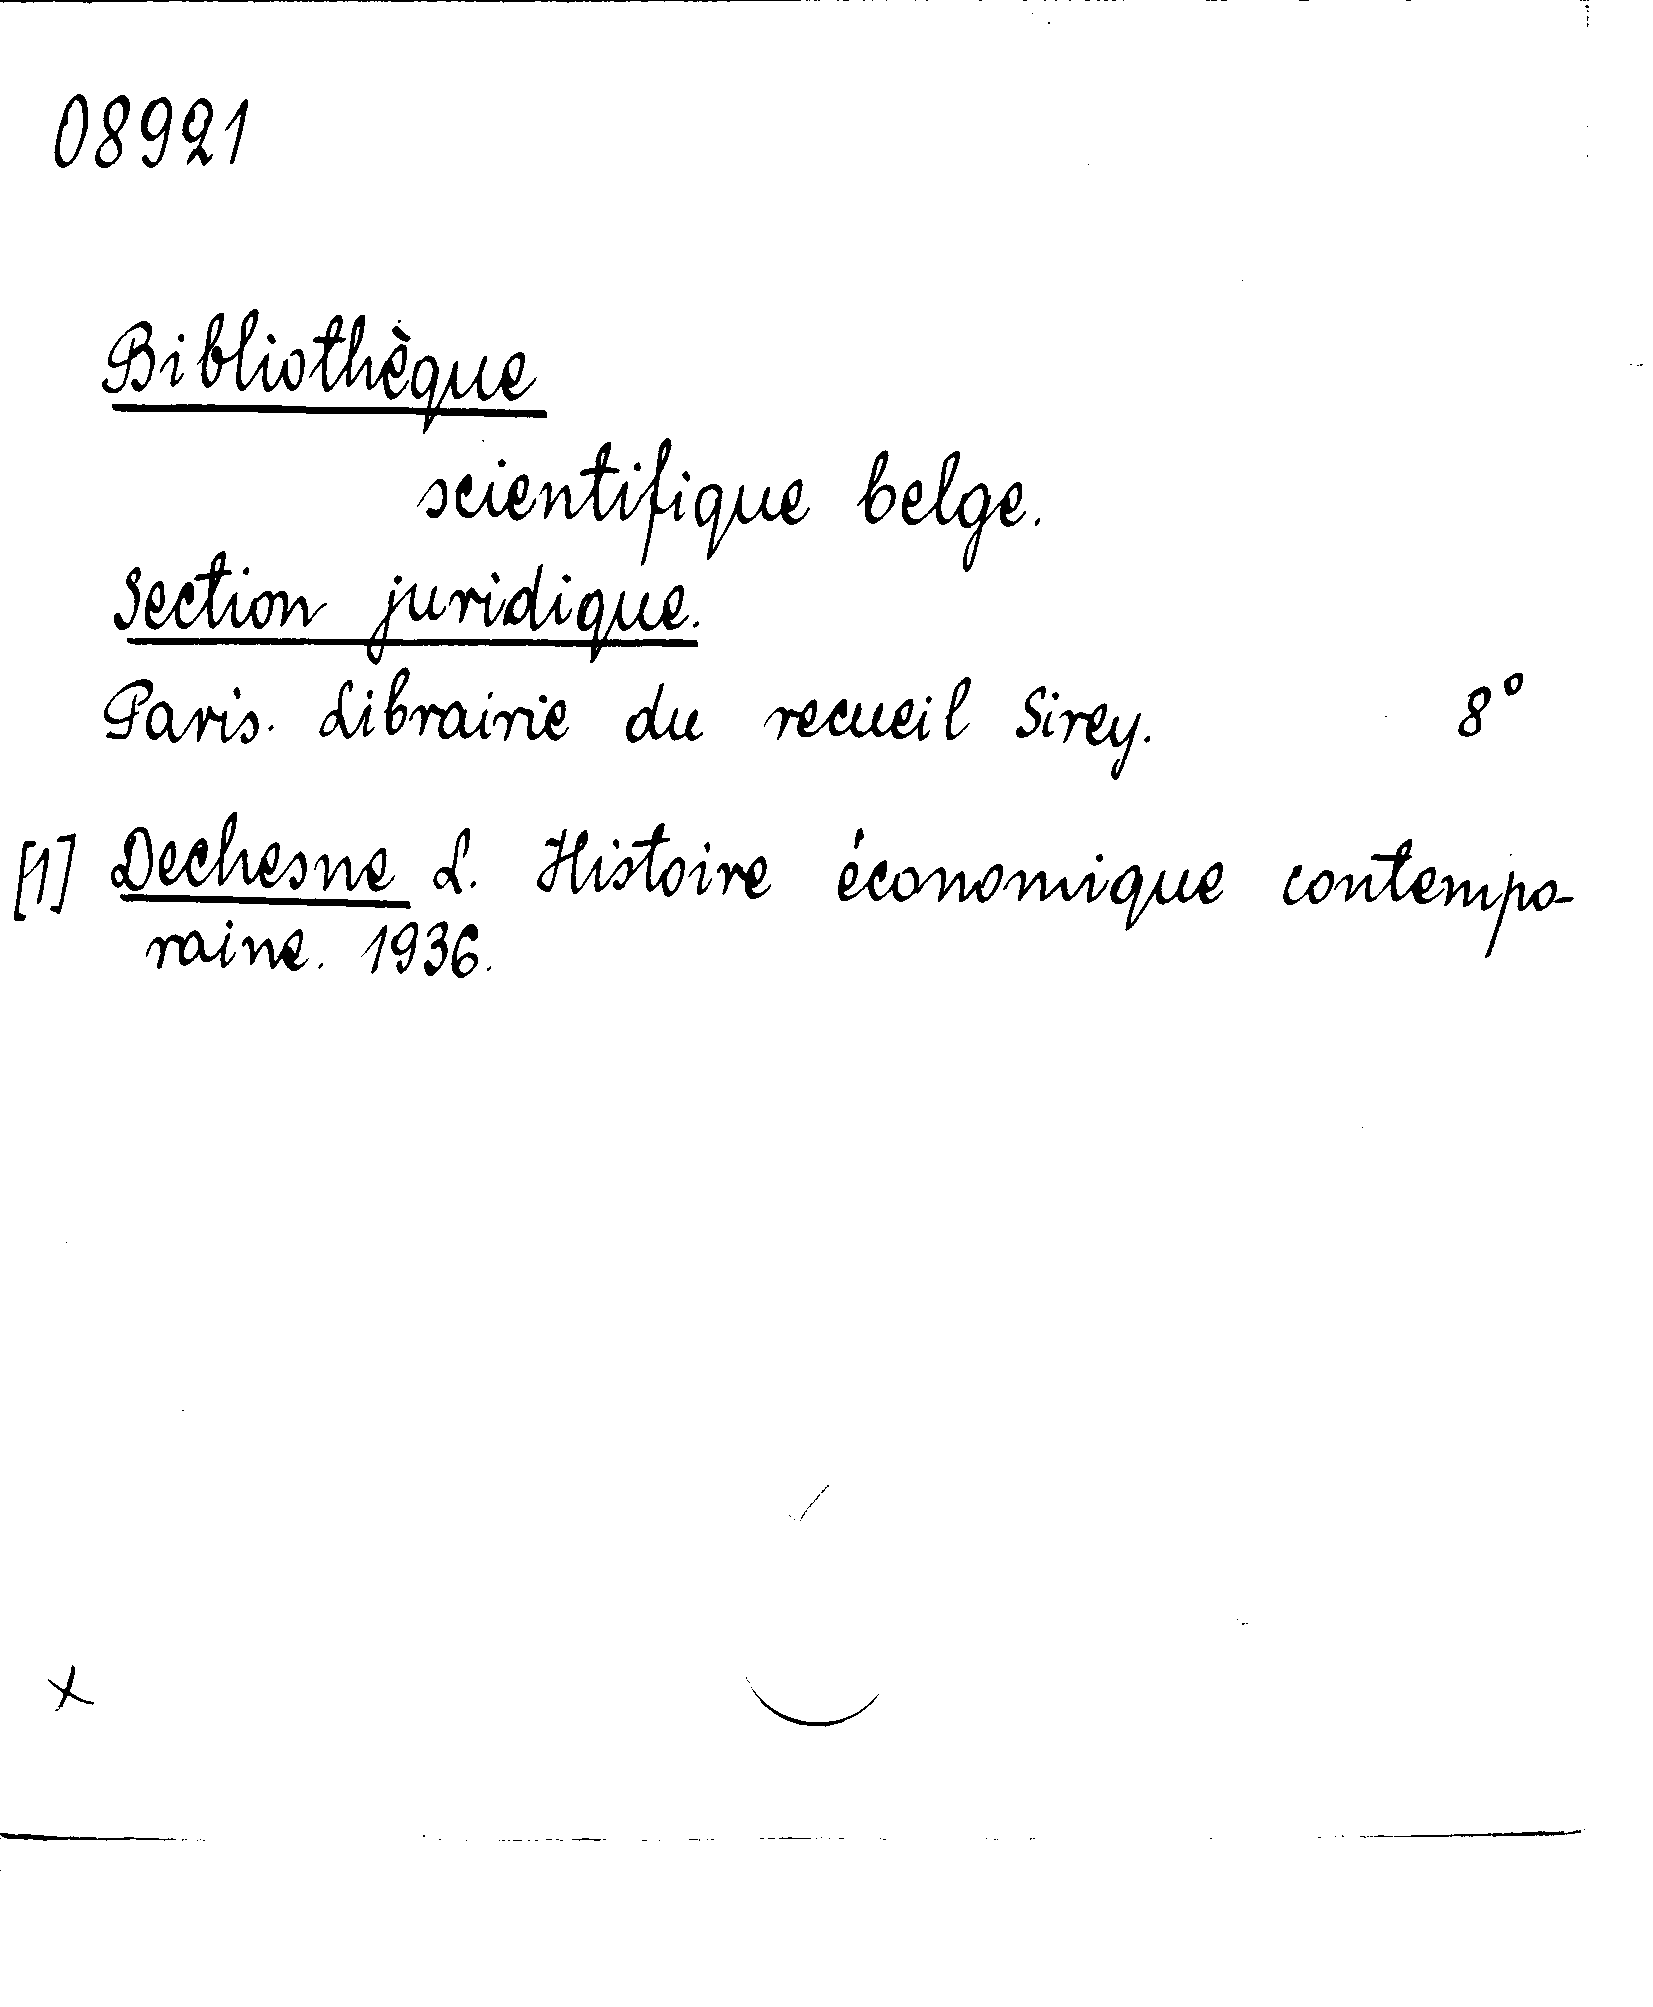 08921
Bibliothèque
scientifique belge.
Section juridique.
Paris. Librairie du recueil Sirey. 8°
[1] Dechesne L. Histoire économique contempo-
raine. 1936.
x